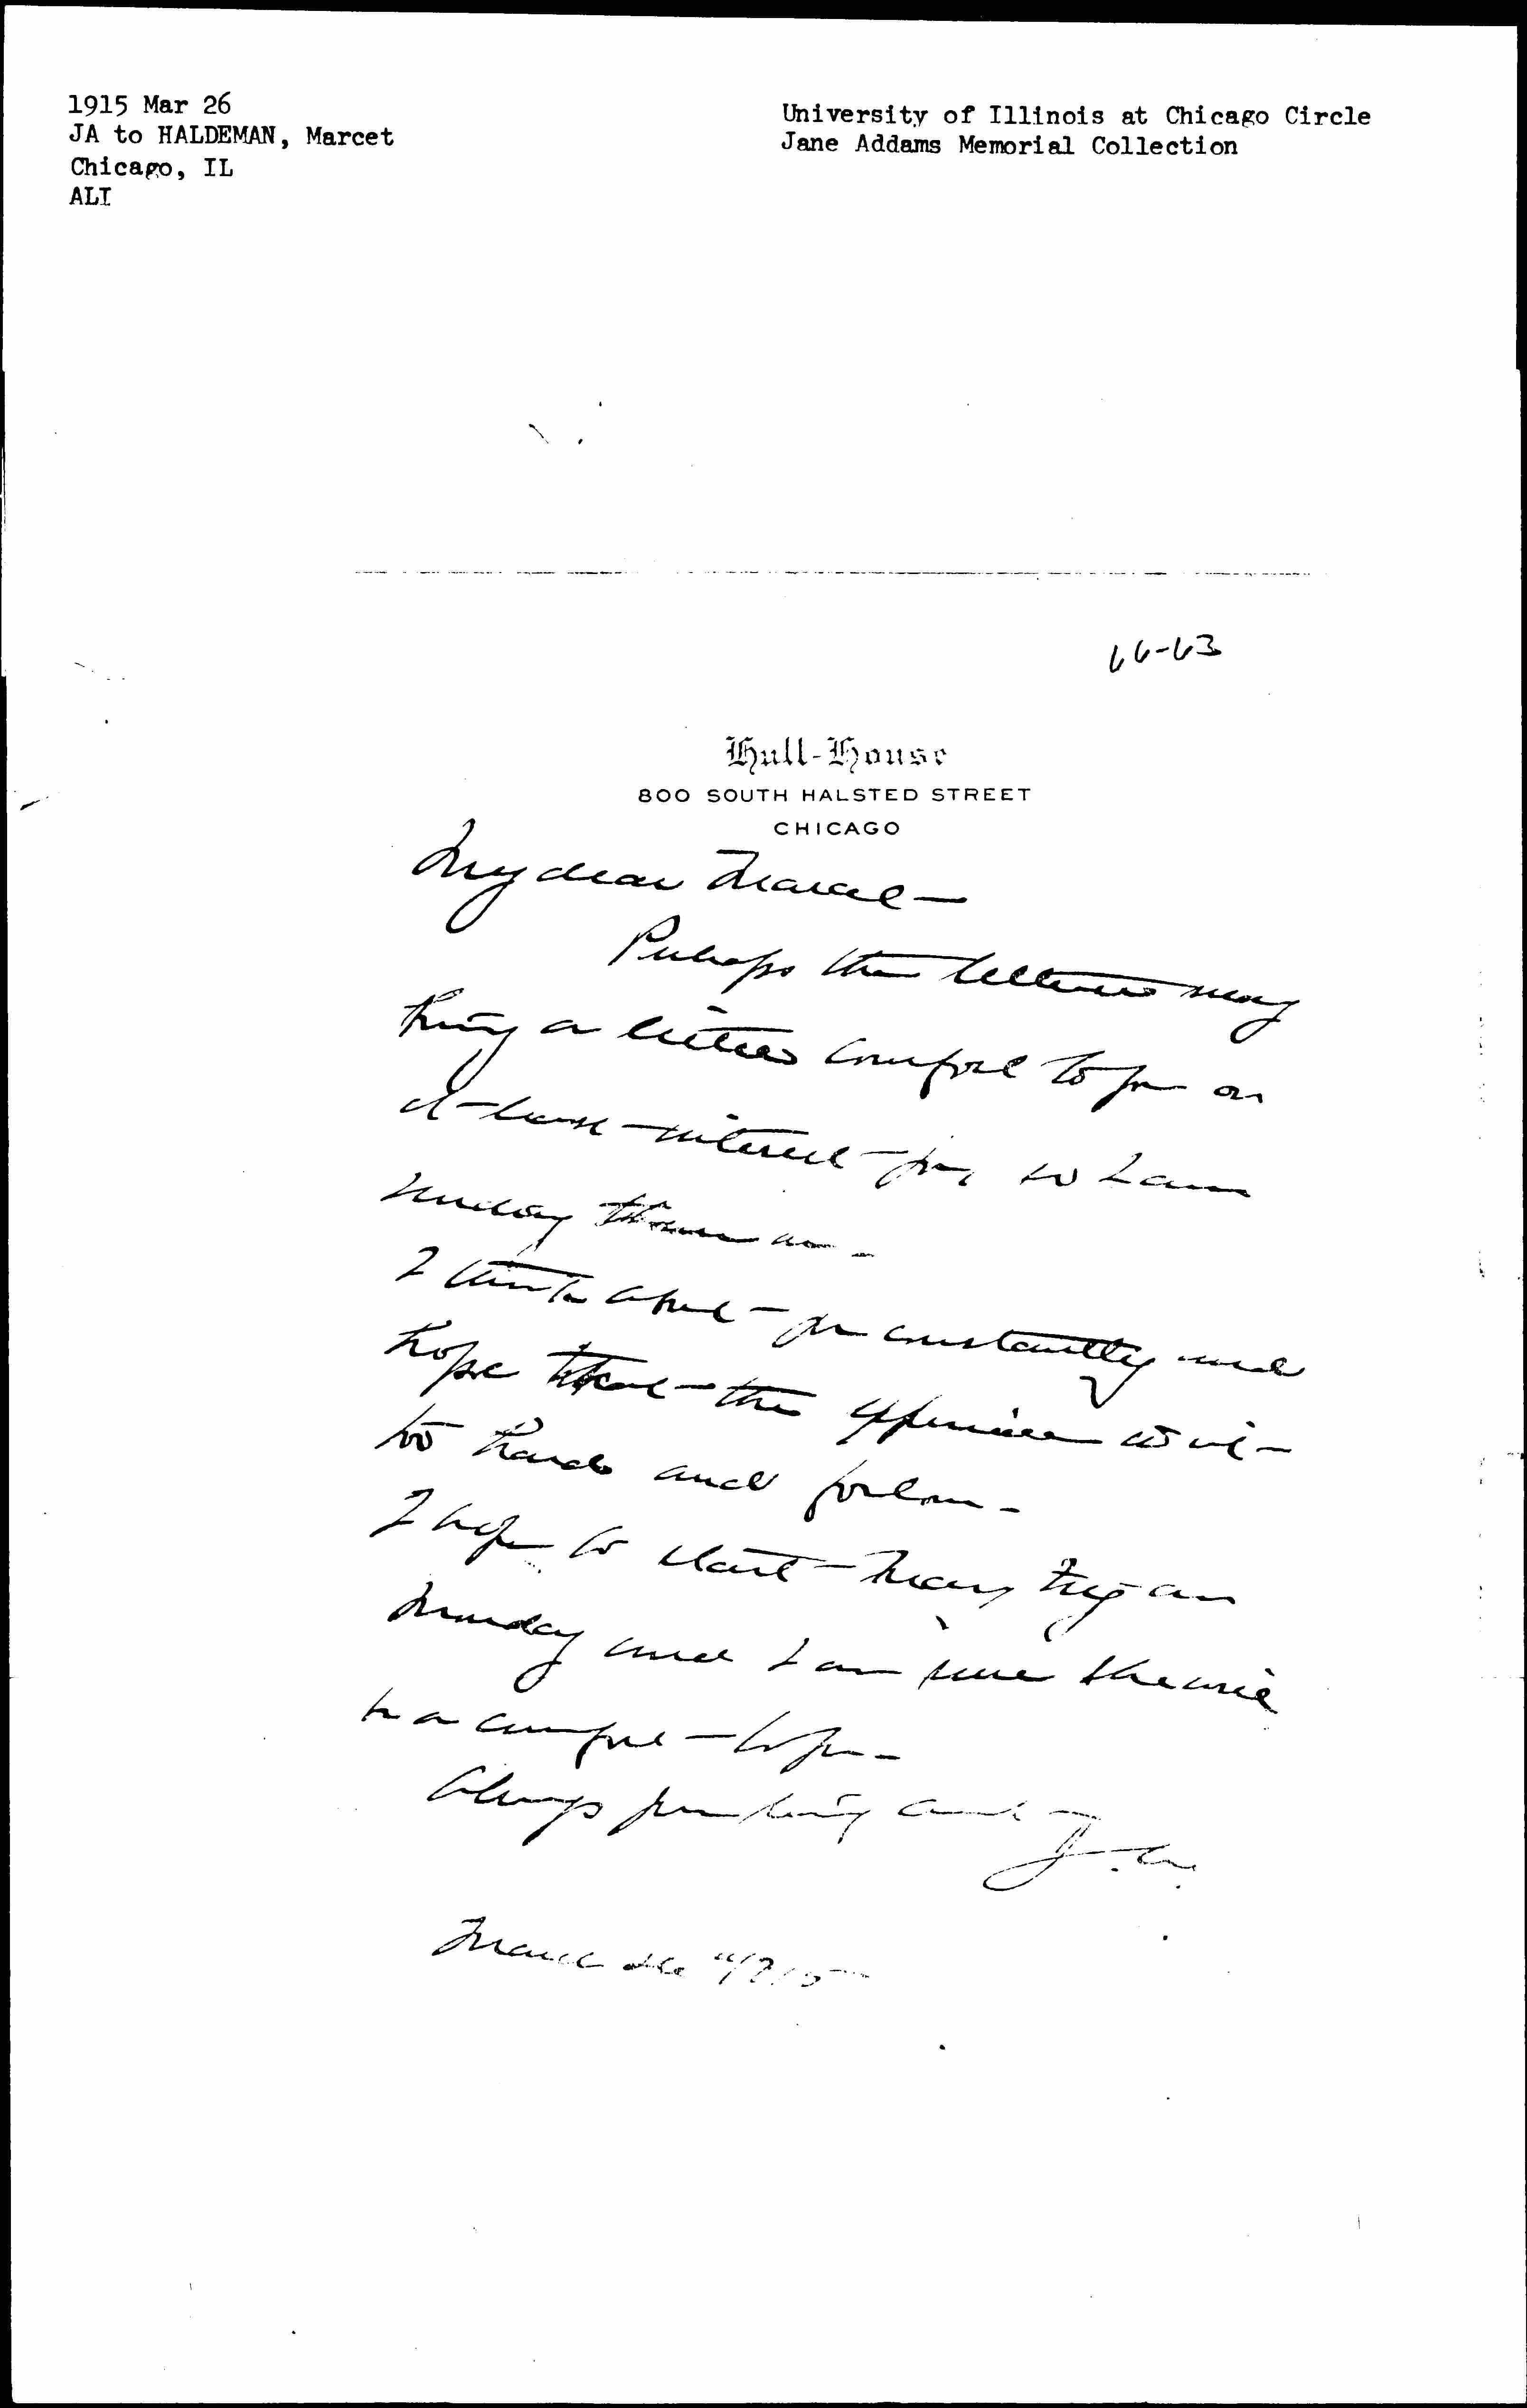 1915 Mar 26
JA to HALDEMAN, Marcet
Chicago, IL
ALI
University of Illinois at Chicago Circle
Jane Addams Memorial Collection
66-63
Hull-House
800 SOUTH HALSTED STREET
CHICAGO
My dear Marcet —
Perhaps the letters may
bring a little comfort to you or
at least interest you, so I am
sending them on —
I think about you constantly and
hope that the experience is not
too hard and forlorn —
I hope to start Mary Fry on
Monday and I am sure she will
be a comfort to you —
Always your loving aunt
J. A.
March 26" 1915